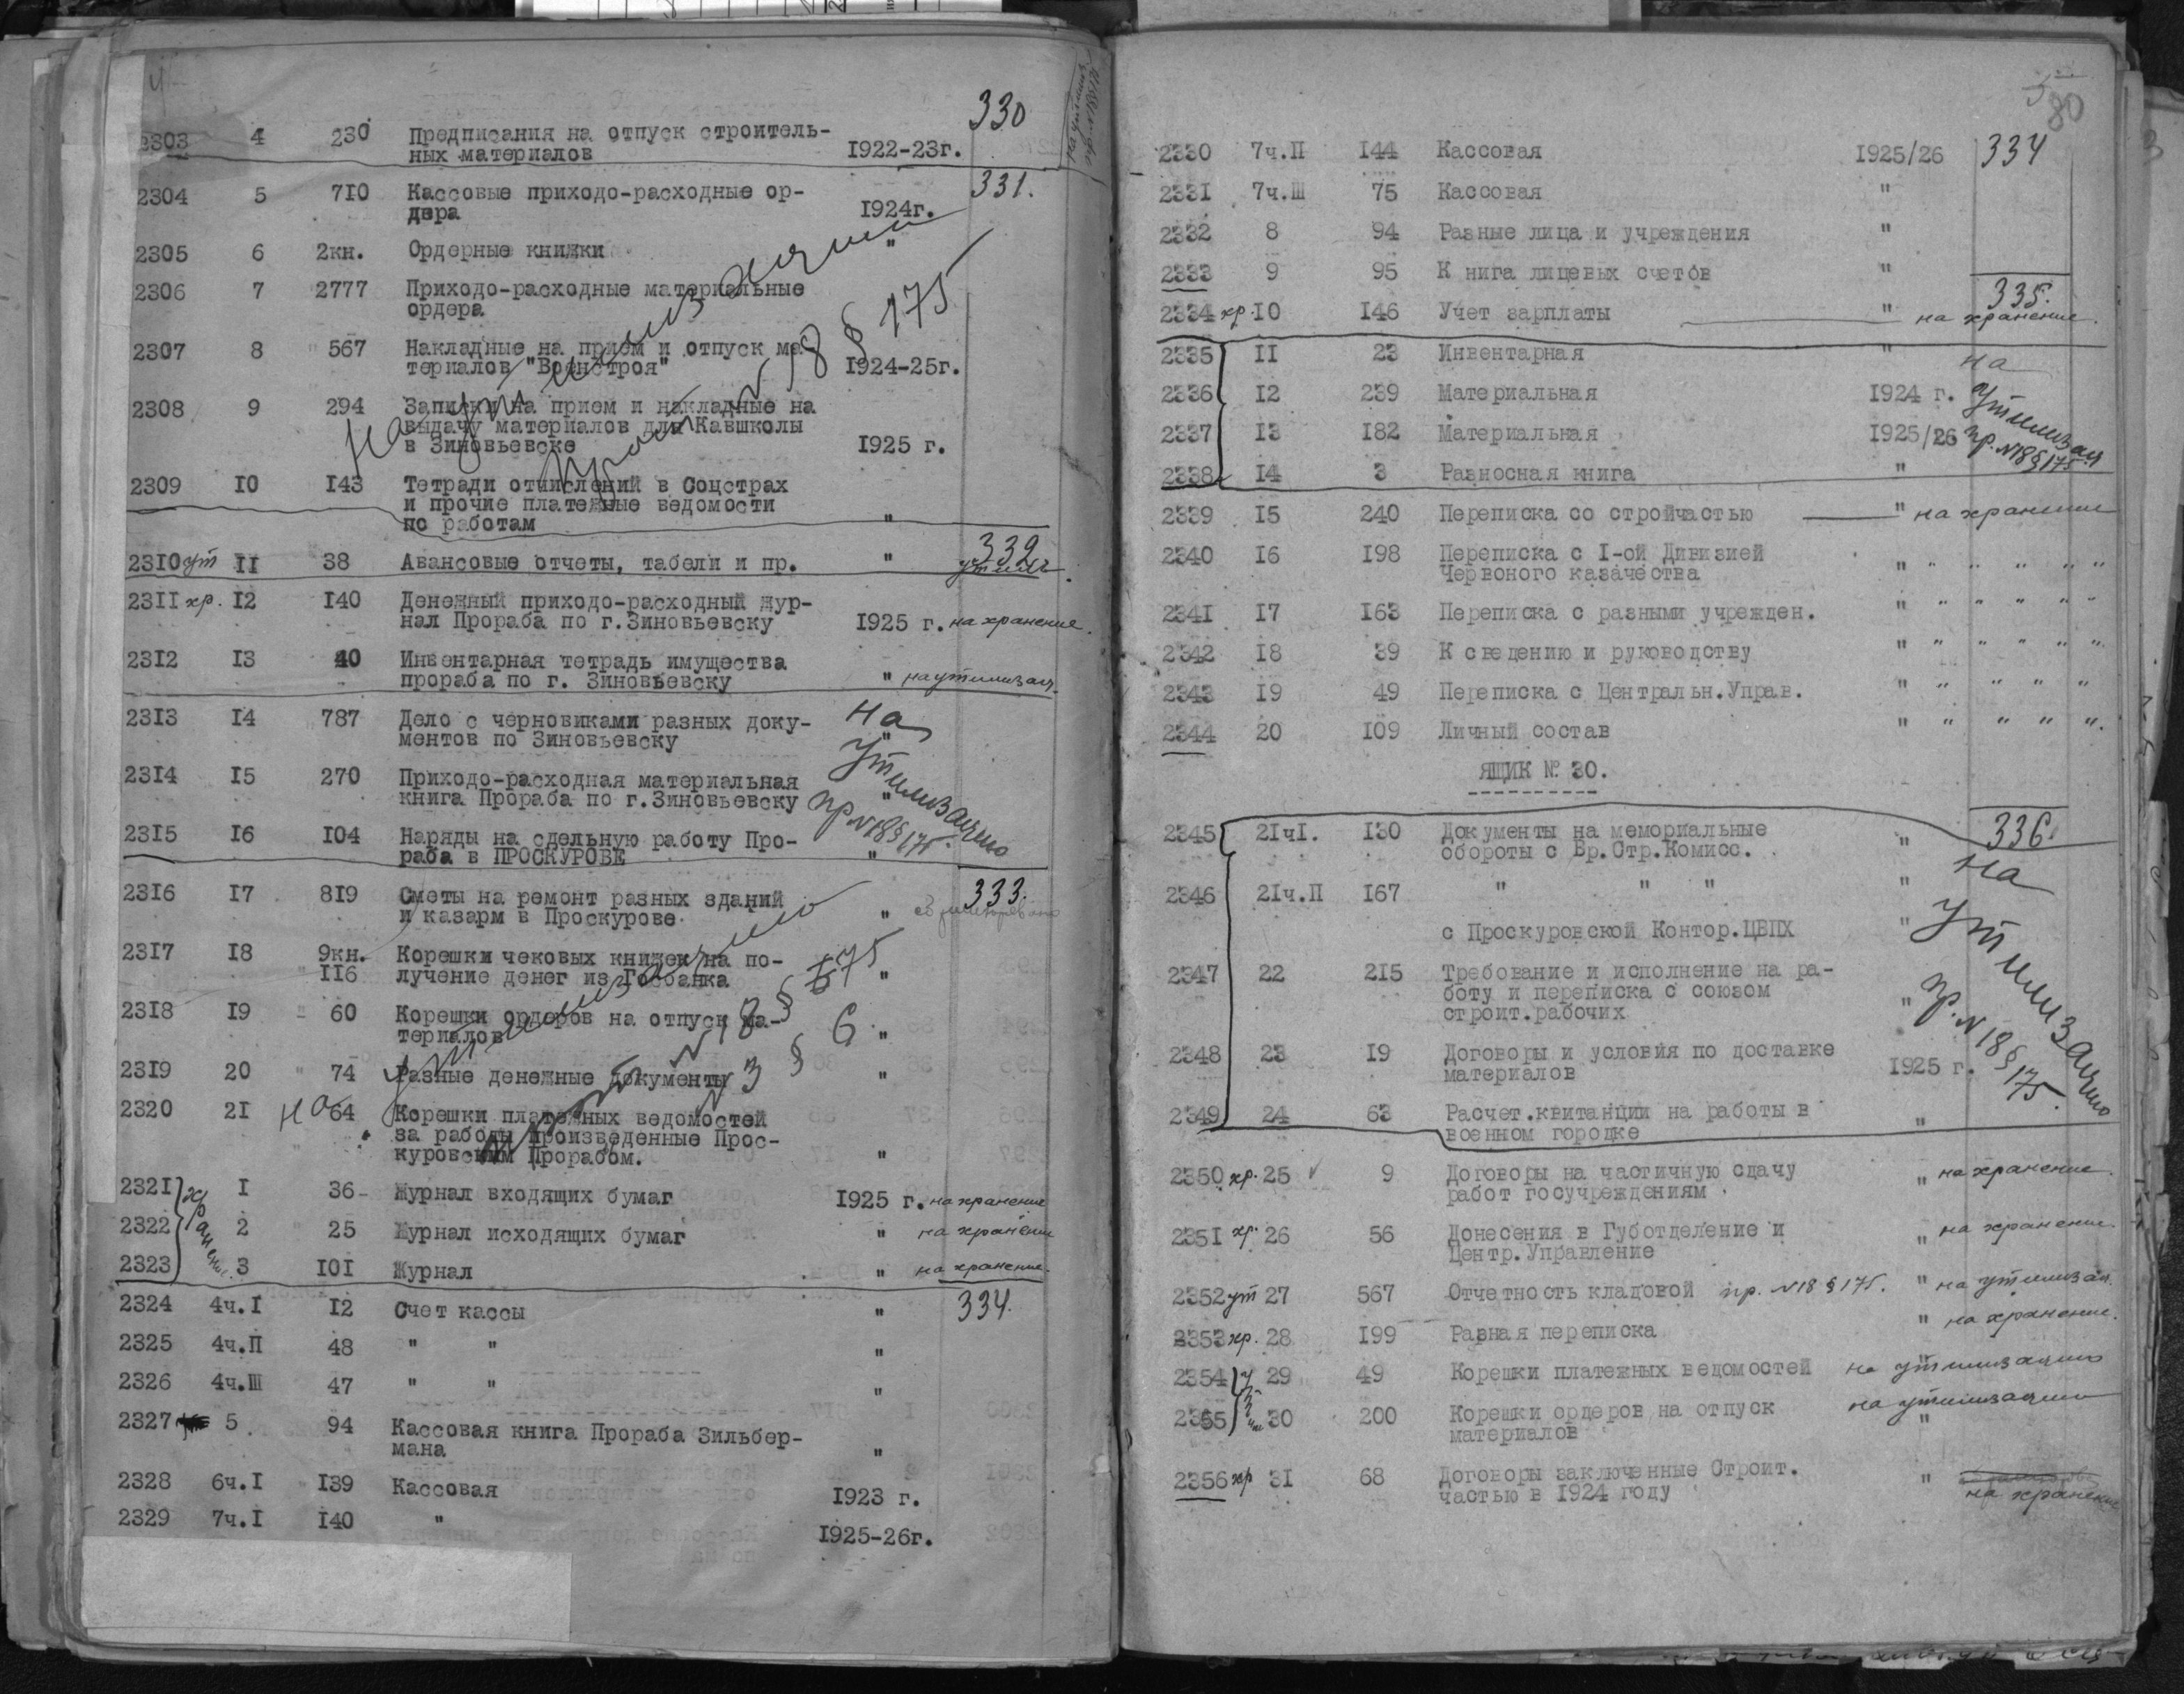 330
2303 4 230 Предписания на отпуск строитель-
ных материалов 1922-23г.
331.
2304 5 710 Кассовые приходо-расходные ор-
дера 1924г.
2305 6 2кн. Ордерные книжки "
2306 7 2777 Приходо-расходные материальные
ордера
2307 8 " 567 Накладные на прием и отпуск ма-
териалов "Военстроя" 1924-25г.
2308 9 294 Записки на прием и накладные на
выдачу материалов для Кавшколы
в Зиновьевске 1925 г.
2309 10 143 Тетради отчислений в Соцстрах
и прочие платежные ведомости
по работам "
на утилизацию
прот N 18 § 175
332
2310 ут 11 38 Авансовые отчеты, табели и пр. " утилиз.
2311 хр. 12 140 Денежный приходо-расходный жур-
нал Прораба по г.Зиновьевску 1925 г. на хранение.
2312 13 40 Инвентарная тетрадь имущества
прораба по г. Зиновьевску " на утилизац.
2313 14 787 Дело с черновиками разных доку-
ментов по Зиновьевску "
2314 15 270 Приходо-расходная материальная
книга Прораба по г.Зиновьевску "
2315 16 104 Наряды на сдельную работу Про-
раба в ПРОСКУРОВЕ "
на
утилизацию
пр N18 § 175.
333.
2316 17 819 Сметы на ремонт разных зданий
и казарм в Проскурове "
2317 18 9кн. Корешки чековых книжек на по-
" 116 лучение денег из Госбанка "
2318 19 60 Корешки ордеров на отпуск ма-
териалов "
2319 20 " 74 Разные денежные документы "
2320 21 64 Корешки платежных ведомостей
за работы произведенные Прос-
куровским Прорабом. "
на утилизацию
N 18 § 175
N 3 § 6
2321 1 36 Журнал входящих бумаг 1925 г. на хранение
2322 2 25 Журнал исходящих бумаг " на хранение
2323 3 101 Журнал " на хранение.
хранение.
2324 4ч.I 12 Счет кассы " 334.
2325 4ч.П 48 " " "
2326 4ч.Ш 47 " " "
2327 5 94 Кассовая книга Прораба Зильбер-
мана "
2328 6ч.I 139 Кассовая 1923 г.
2329 7ч.I 140 " 1925-26г.
80
2330 7ч.П 144 Кассовая 1925/26 334
2331 7ч.Ш 75 Кассовая "
2332 8 94 Разные лица и учреждения "
2333 9 95 К нига лицевых счетов "
335.
2334 хр. 10 146 Учет зарплаты " на хранение.
2335 11 23 Инвентарная "
2336 12 239 Материальная 1924 г.
2337 13 182 Материальная 1925/26
2338 14 3 Разносная книга "
на
утилизац
пр. N18 § 175
2339 15 240 Переписка со стройчастью " на хранение
2340 16 198 Переписка с I-ой Дивизией
Червоного казачества " " " " " "
2341 17 163 Переписка с разными учрежден. " " " " " "
2342 18 39 К сведению и руководству " " " " " "
2343 19 49 Переписка с Центральн.Управ. " " " " "
2344 20 109 Личный состав " " " " ".
ЯЩИК № 30.
336.
2345 21чI. 130 Документы на мемориальные
обороты с Вр.Стр.Комисс. "
2346 21ч.П 167 " " " "
с Проскуровской Контор.ЦВПХ "
2347 22 215 Требование и исполнение на ра-
боту и переписка с союзом
строит.рабочих "
2348 23 19 Договоры и условия по доставке
материалов 1925 г.
2349 24 63 Расчет.квитанции на работы в
военном городке "
на
утилизацию
пр. N 18 § 175.
2350 хр. 25 9 Договоры на частичную сдачу
работ госучреждениям " на хранение.
2351 хр. 26 56 Донесения в Губотделение и
Центр.Управление " на хранение.
2352 ут 27 567 Отчетность кладовой пр. N18 § 175. " на утилизац.
2353 хр. 28 199 Разная переписка " на хранение.
2354 29 49 Корешки платежных ведомостей " на утилизацию
2355 30 200 Корешки ордеров на отпуск
материалов " на утилизацию
2356 хр 31 68 Договоры заключенные Строит.
частью в 1924 году " на хранение